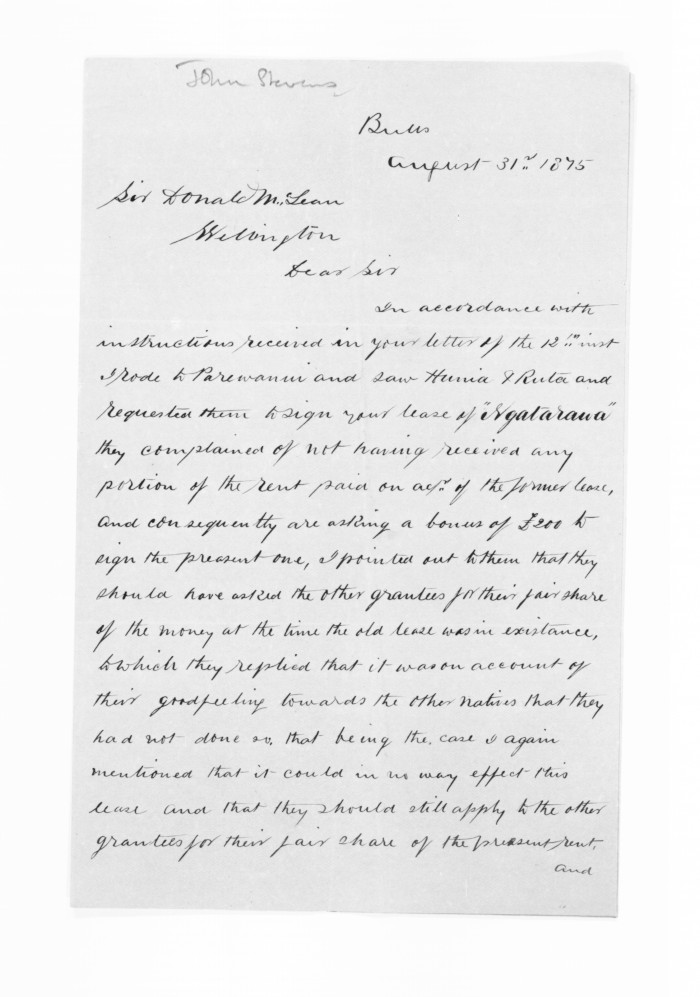 John Stevens
Bulls
August 31st 1875
Sir Donald McLean
Wellington
Dear Sir
In accordance with
instructions received in your letter of the 12th inst
I rode to Parewanui and saw Hunia & Ruta and
requested them to sign your lease of "Ngatarawa"
they complained of not having received any
portion of the rent paid on acct. of the former lease,
and consequently are asking a bonus of £200 to
sign the preasent one, I pointed out to them that they
should have asked the other grantees for their fair share
of the money at the time the old lease was in existance,
to which they replied that it was on account of
their goodfeeling towards the other natives that they
had not done so, that being the case I again
mentioned that it could in no way effect this
lease and that they should still apply to the other
grantees for their fair share of the preasent rent.
and